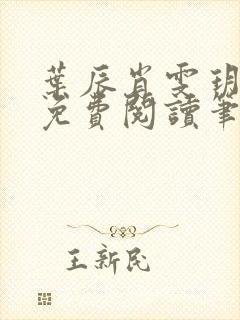 葉辰肖雯玥
免費閱讀筆
王新民